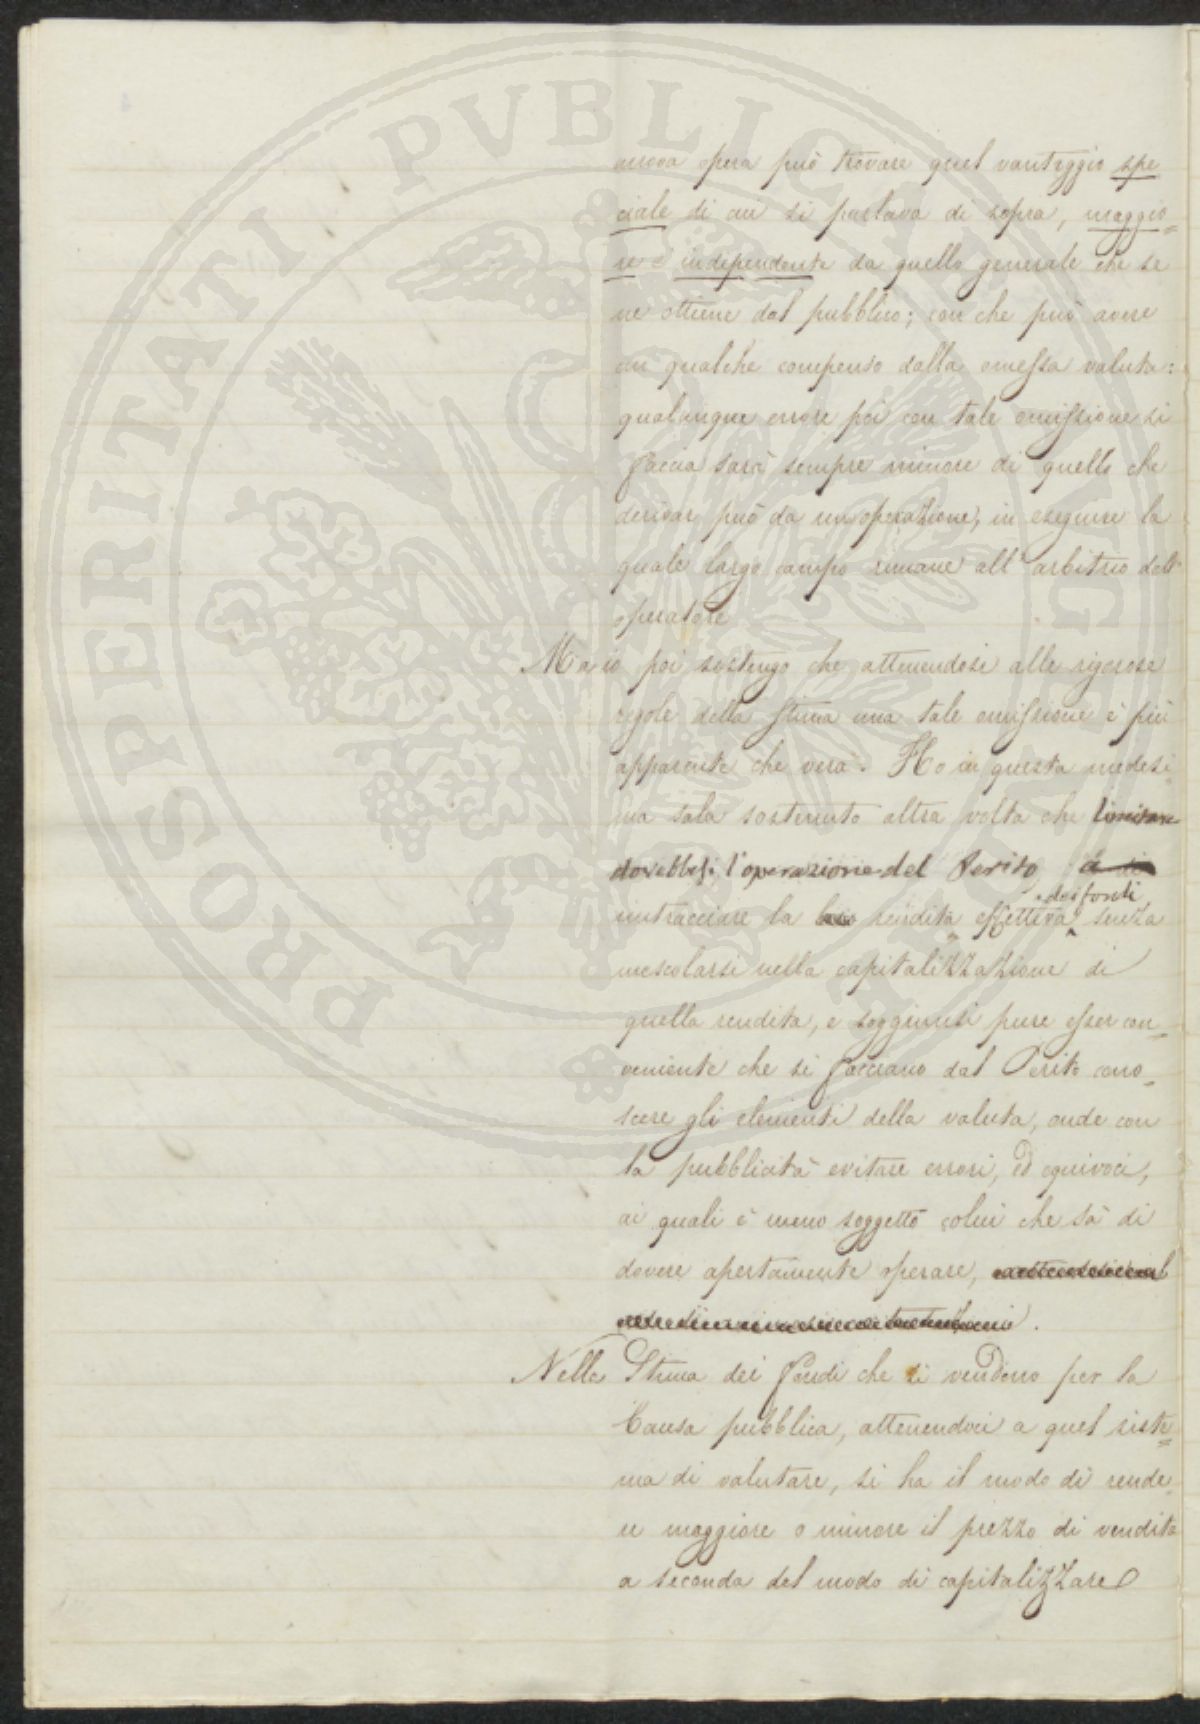 nuova opera può trovare quel vantaggio spe
ciale di cui si parlava di sopra, maggio=
re e independente da quello generale che se
ne ottiene dal pubblico; con che può avere
un qualche compenso dalla omessa valuta:
qualunque errore poi con tale omissione si
faccia sarà sempre minore di quello che
derivar può da un operazione, in eseguire la
quale largo campo rimane all'arbitrio dell'
operatore
Ma io poi sostengo che attenendosi alle rigorose
regole della stima una tale omissione è più
apparente che vera. Ho in questa medesi
ma sala sostenuto altra volta che limitare
dovebbesi l'operazione del Perito a
dei fondi
rintracciare la rendita effettiva senza
mescolarsi nella capitalizzazione di
quella rendita, e soggiunsi pure esser con=
veniente che si facciano dal Perito cono=
scere gli elementi della valuta, onde con
la pubblicità evitare errori, ed equivoci,
ai quali è meno soggetto colui che sà di
dovere apertamente operare,
Nella Stima dei fondi che si vendono per la
Causa pubblica, attenendoci a quel siste=
ma di valutare, si ha il modo di rende
re maggiore o minore il prezzo di vendita
a seconda del modo di capitalizzare
PROSPERITATI PVBLICAE AVGENDAE